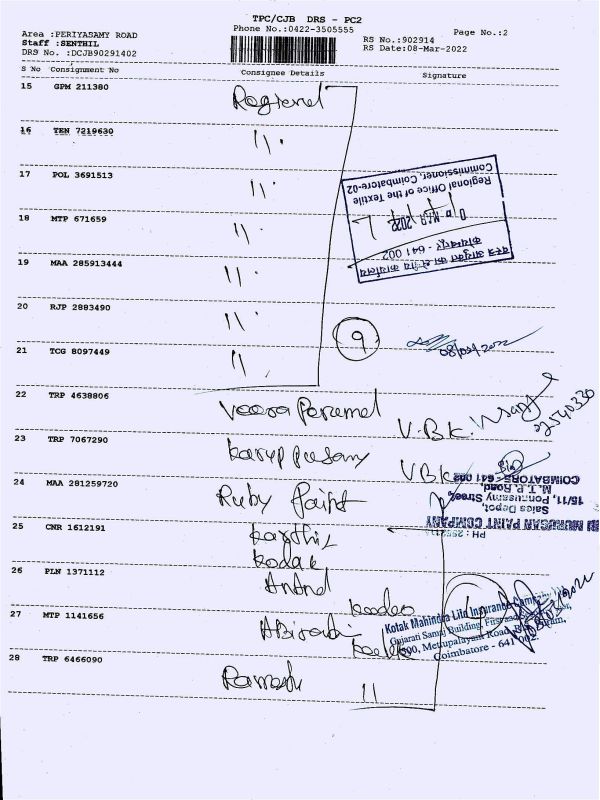 TPC/CJB DRS - PC2
Phone No.:0422-3505555
Page No.:2
Area :PERIYASAMY ROAD
Staff :SENTHIL
DRS No. :DCJB90291402
RS No.:902914
RS Date:08-Mar-2022
S No Consignment No Consignee Details Signature
15 GPM 211380 Regional
16 TEN 7219630 11.
17 POL 3691513 11.
18 MTP 671659 11.
19 MAA 285913444 11.
20 RJP 2883490 11.
21 TCG 8097449 11.
Regional Office of the Textile
Commissioner, Coimbatore-02
MAR 2022
वस्त्र आयुक्त का क्षेत्रीय कार्यालय
कोयम्बटूर - 641 002
9
08/03/2022
22 TRP 4638806 Veera Perumal V.B.K.
23 TRP 7067290 Karuppusamy VBK
24 MAA 281259720 Ruby Paint
MURUGAN PAINT COMPANY
Sales Depot,
15/11, Ponnusamy Street,
M.T.P. Road,
COIMBATORE - 641 002
PH :
25 CNR 1612191 Karthik
Kodak
26 PLN 1371112 Anand
27 MTP 1141656
Kotak Mahindra Life Insurance Company
Gujarati Samaj Building, First
Mettupalayam Road,
Coimbatore - 641 002
28 TRP 6466090 Ramesh 11